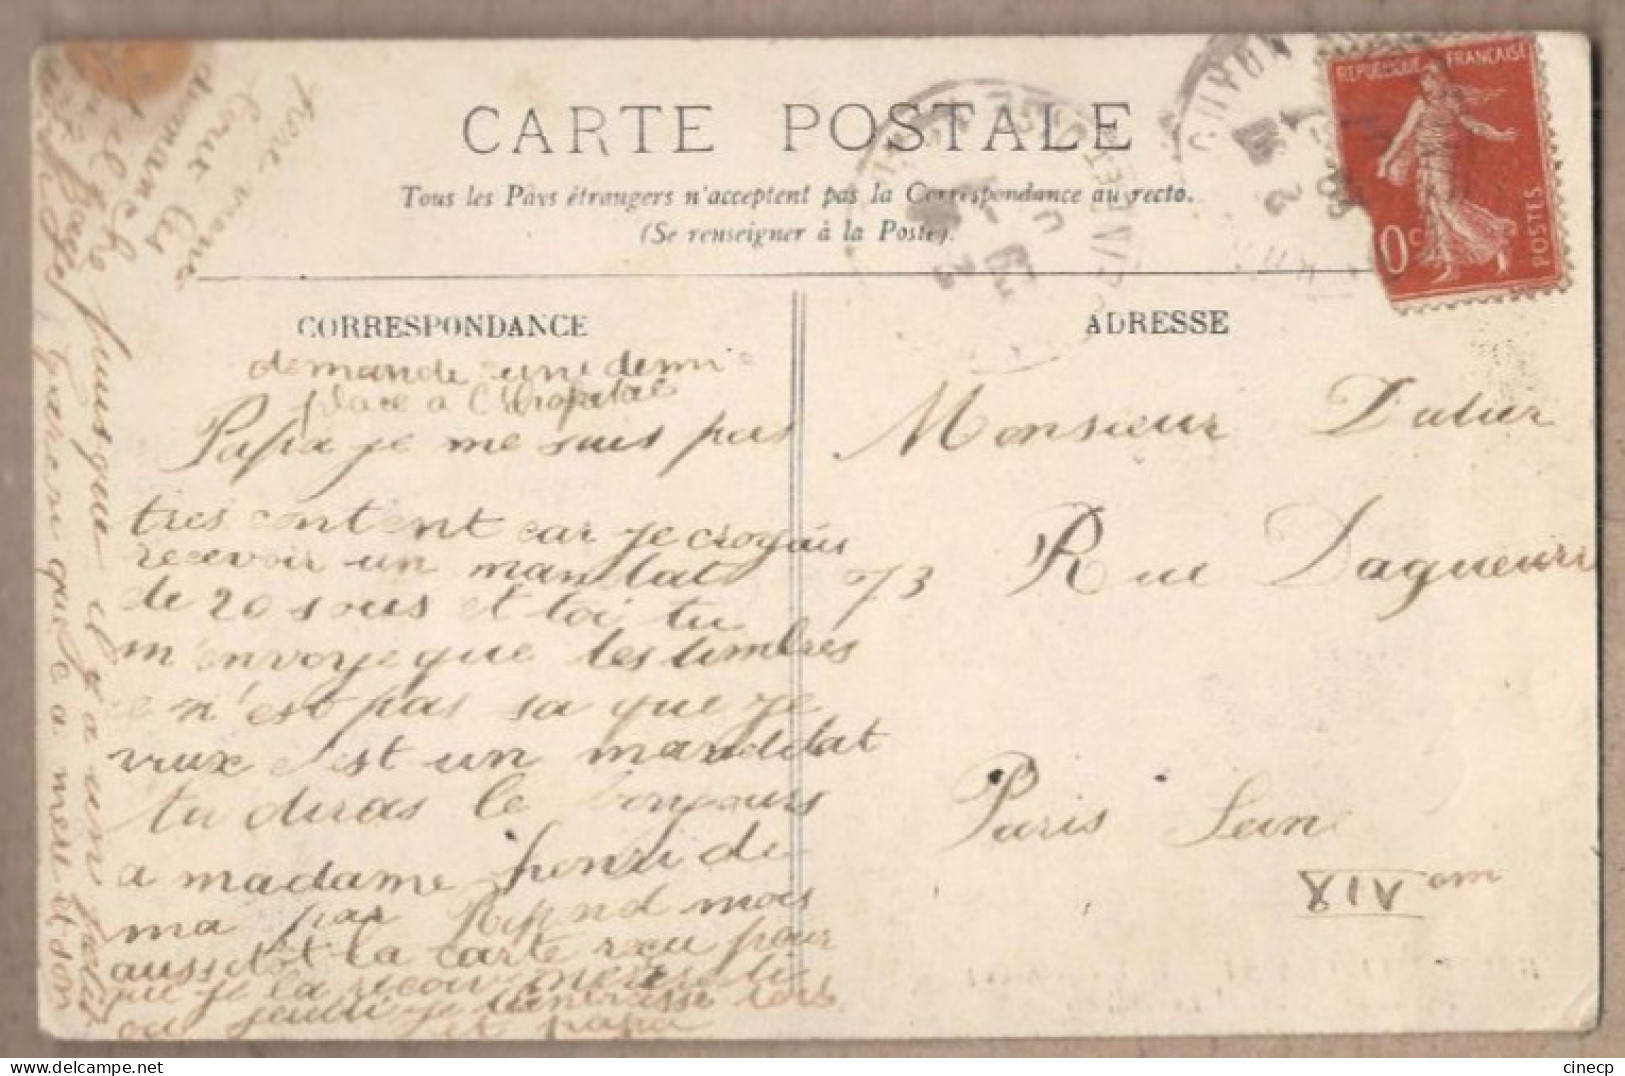 CARTE POSTALE
Tous les Pays étrangers n'acceptent pas la Correspondance au recto.
(Se renseigner à la Poste).
REPUBLIQUE FRANÇAISE
POSTES
0c
CORRESPONDANCE
ADRESSE
demande une demi
place a l'hopital
Papa je me suis pas
tres content car je croyais
recevoir un mandat
de 20 sous et toi tu
m'envoye que les timbres
ce n'est pas sa que je
veux c'est un manddat
tu diras le bonjours
a madame henri de
ma par Repond mois
aussitot la carte recu pour
que je la recoive mercredi
ou jeudi je t'embrasse
et papa
Monsieur Dutier
73 Rue Daguerre
Paris Seine
XIV em
puisque il y a un
que a mere et son
pere viene
tous les
dimanche
cinecp